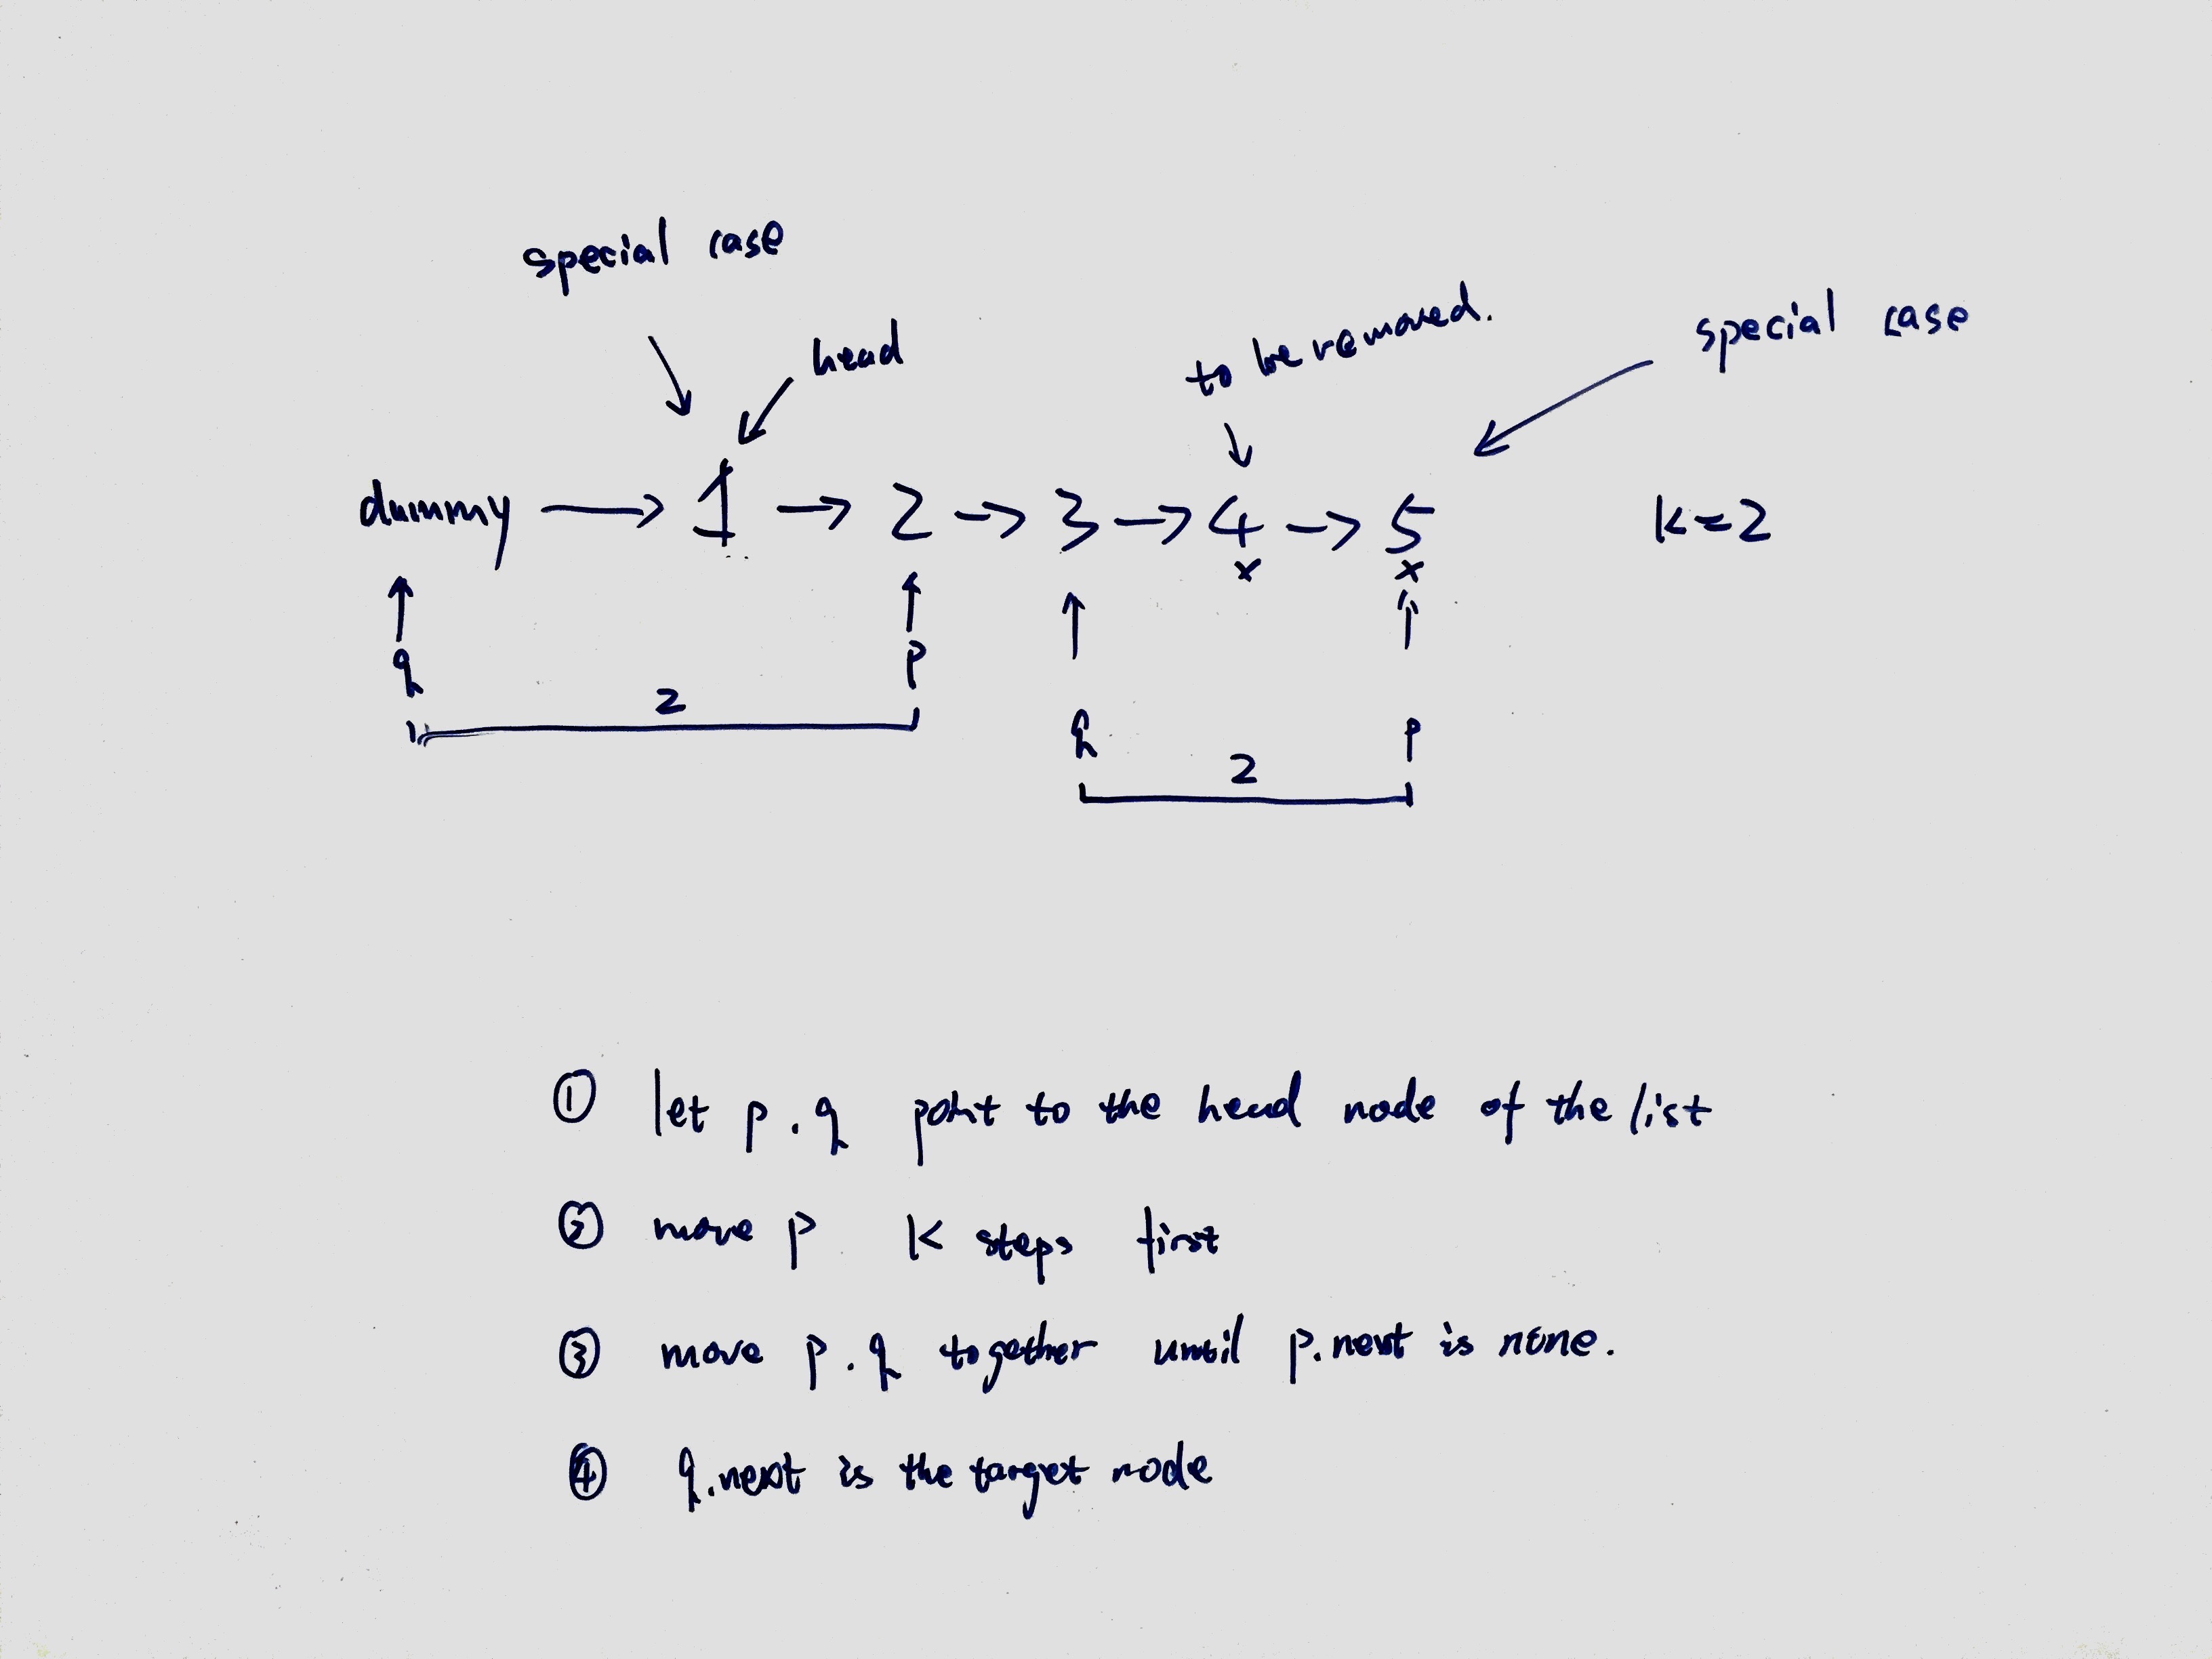 special case
head
to be removed.
special case
dummy → 1 → 2 → 3 → 4 → 5
k=2
x x
q p
2
q p
2
① let p.q point to the head node of the list
② move p k steps first
③ move p.q together until p.next is none.
④ q.next is the target node